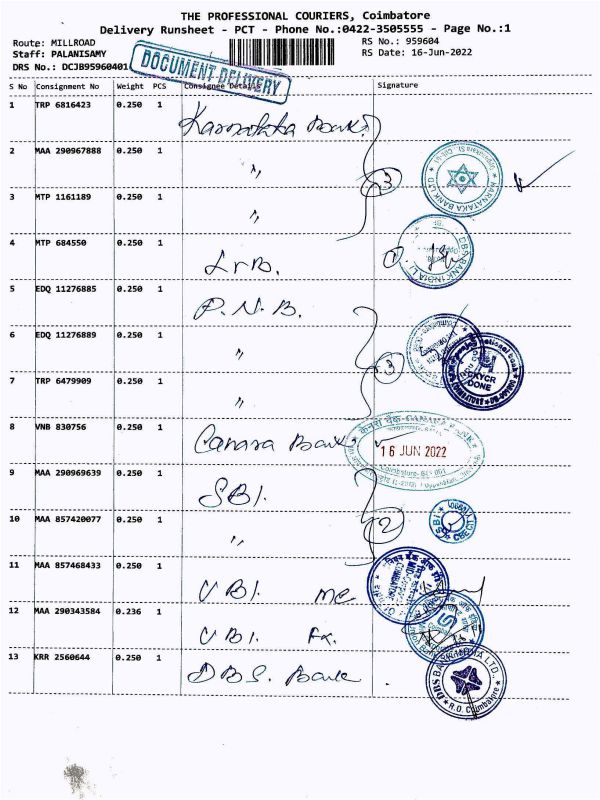 THE PROFESSIONAL COURIERS, Coimbatore
Delivery Runsheet - PCT - Phone No.:0422-3505555 - Page No.:1
Route: MILLROAD RS No.: 959604
Staff: PALANISAMY RS Date: 16-Jun-2022
DRS No.: DCJB95960401
DOCUMENT DELIVERY
S No Consignment No Weight PCS Consignee Details Signature
1 TRP 6816423 0.250 1 Karnataka Bank
2 MAA 290967888 0.250 1 "
3 MTP 1161189 0.250 1 " 3
4 MTP 684550 0.250 1 1
5 EDQ 11276885 0.250 1 P.N.B.
6 EDQ 11276889 0.250 1 "
7 TRP 6479909 0.250 1 " 3
8 VNB 830756 0.250 1 Canara Bank
16 JUN 2022
9 MAA 290969639 0.250 1 SBI.
10 MAA 857420077 0.250 1 " 2
11 MAA 857468433 0.250 1 UBI. me
12 MAA 290343584 0.236 1 UBI. Fx.
13 KRR 2560644 0.250 1 DBS. Bank